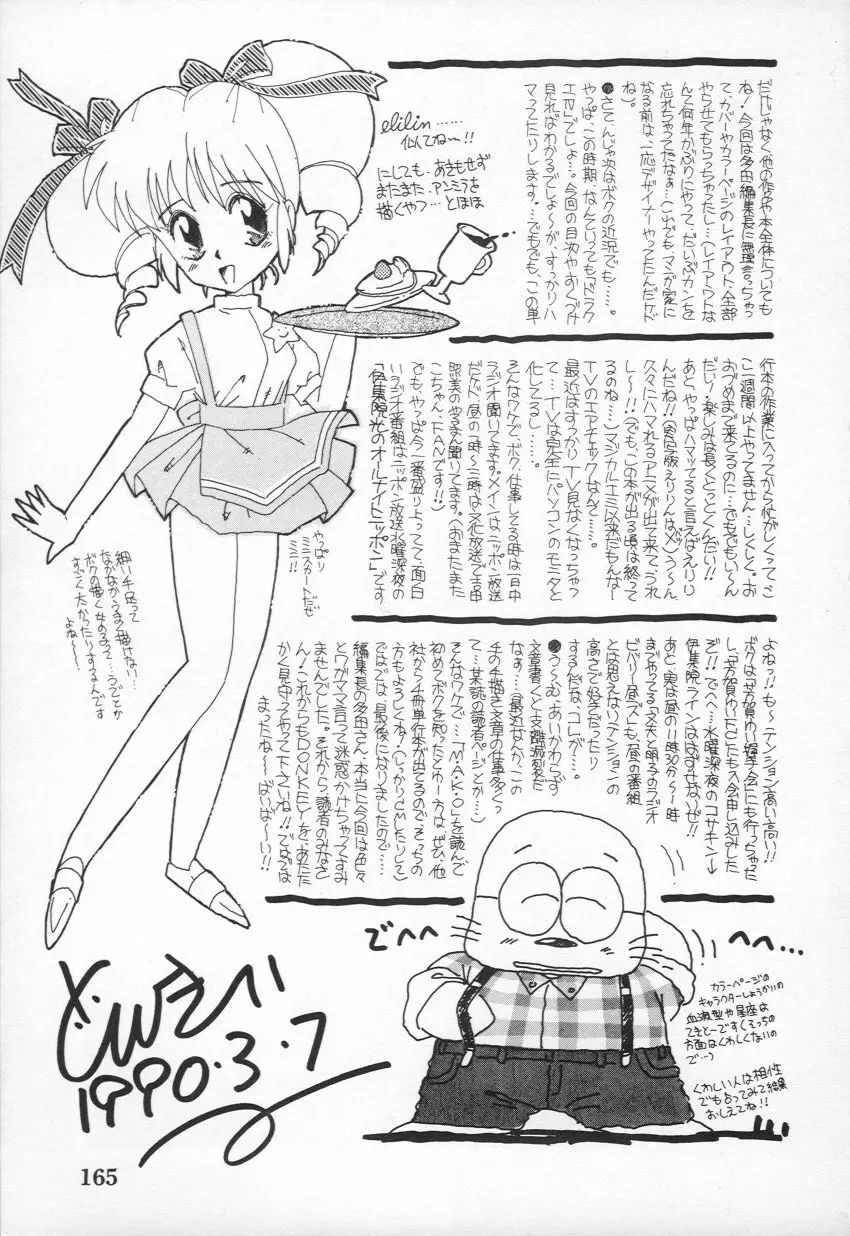 だけじゃなく他の作品や本全体についても
ね！今回は多田編集長に無理言っちゃっ
て、カバーやカラーページのレイアウト、全部
やらせてもらっちゃったし…（レイアウトな
んて何年かぶりにやって、だいぶカンを
忘れちゃってたなぁ…）これでもマンガ家に
なる前は、一応デザイナーやってたんだけど
ね）。
●さて、んじゃ次はボクの近況でも……。
やっぱ、この時期、なんといっても「ドラク
エⅣ」でしょ…。今回の目次やおくづけ
見ればわかるでしょーが、すっかりハ
マってたりします。…でもでも、この単
行本の作業に入ってから忙がしくってこ
こ一週間以上やってません…しくしく。お
おづめまで来てるのに…でもでもい〜ん
だい！楽しみは長くとっとくんだい!!
あと、やっぱハマってると言えばえりり
んだね!!（実写版えりりんは✕）う〜ん
久々にハマれるアニメが出て来てうれ
し〜!!（でも、この本が出る頃は終って
るのね……）マジカルエミ以来だもんなー
TVのエアチェックなんて……。
最近はすっかりTV見なくなっちゃっ
て…TVは完全にパソコンのモニタと
化してるし……。
そんなワケで、ボク、仕事してる時は一日中
ラジオ聞いてます。メインはニッポン放送
だケド、昼の1時〜三時は文化放送で吉田
照美のやるまん聞いてます。（おまたまた
こちゃん、FANです!!）
でも、やっぱ今一番盛り上ってて面白
いラジオ番組はニッポン放送水曜深夜の
「伊集院光のオールナイトニッポン」です
よねっ!!も〜テンション高い高い!!
ボクは「芳賀ゆい握手会」にも行っちゃった
し、「芳賀ゆいFC」にも入会申し込みした
ぞ!!でへへ…水曜深夜のコサキン→
伊集院ラインははずせないぜ!!
あと、実は昼の11時30分〜1時
までやってる「文夫と明るのラジオ
ビバリー昼ズ」も、昼の番組
とは思えないテンションの
高さで好きだったり
するんだな、コレが…。
●う〜む、あいかわらず
文章書くと支離滅裂だ
なぁ……（最近なんか、この
手の手描き文章の仕事多くっ
て…某誌の読者ページとか…）
そんなワケで…「MA・KO」を読んで
初めてボクを知ったとゆー方は、ぜひ、他
社から4冊単行本が出てるのでそっちの
方もよろしくね！（しっかりCMしたりして）
ではでは、最後になりましたので……
編集長の多田さん、本当に今回は色々
とワガママ言って迷惑かけちゃってすみ
ませんでした。それから読者のみなさ
ん！これからもDONKEYを、あたた
かく見守ってやって下さいね!!ではでは
まったね〜ばいば〜い!!
elilin……
似てねー!!
にしても、あきもせず
またまた、アンミラを
描くやつ…とほほ
やっぱり
ミニスカートだぜ
ミニ!!
細い手足って
なかなかうまく描けない…
ボクの描く女の子って…うでとか
すごく太かったりするんです
よね〜〜
でへへ
へへ…
カラーページの
キャラクターしょうかいの
血液型や星座は
てきとーです（そっちの
方面はくわしくないの
で…）
くわしい人は相性
でも占ってみて結果
おしえてね!!
1990・3・7
165